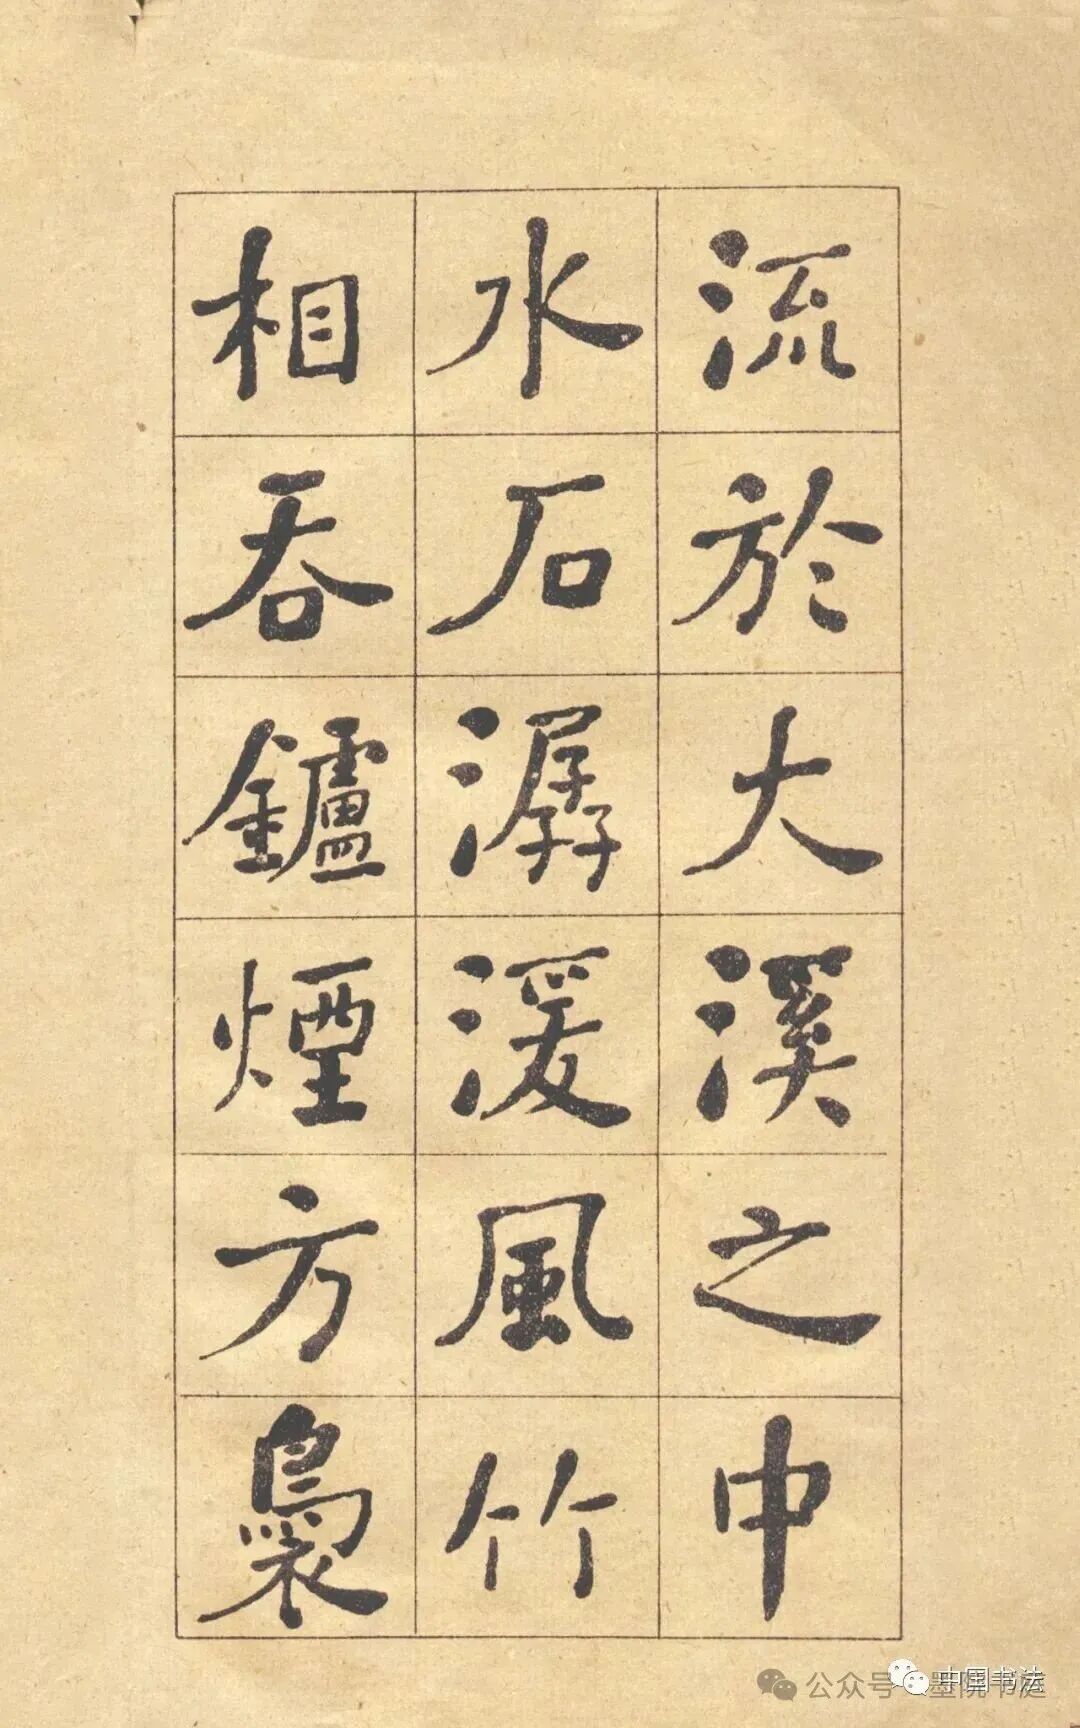 流於大溪之中
水石潺湲風竹
相吞鑪煙方裊
公众号
中国书法